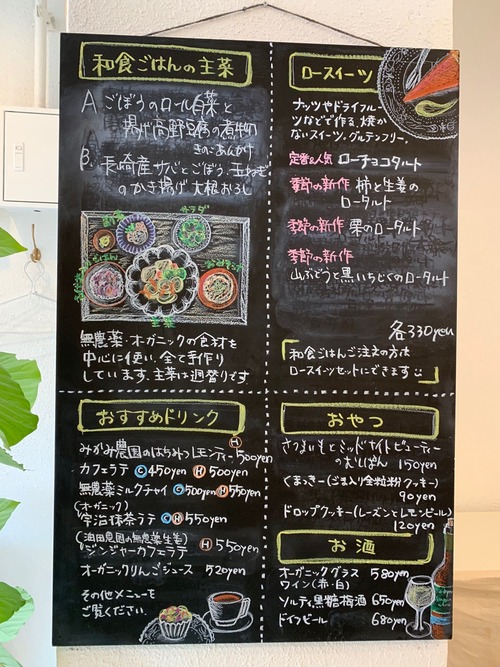 和食ごはんの主菜
A ごぼうのロール白菜と
揚げ高野豆腐の煮物
きのこあんかけ
B. 長崎産サバとごぼう、玉ねぎ
のかき揚げ 大根おろし
サラダ
主菜
無農薬・オーガニックの食材を
中心に使い、全て手作り
しています。主菜は週替りです
ロースイーツ
ナッツやドライフルー
ツなどで作る、焼か
ないスイーツ。グルテンフリー。
定番&人気 ローチョコタルト
季節の新作 柿と生姜の
ロータルト
季節の新作 栗のロータルト
季節の新作
山ぶどうと黒いちじくのロータルト
各330yen
「和食ごはんご注文の方は
ロースイーツセットにできます」
おすすめドリンク
みかみ農園のはちみつレモンティー Ⓗ 500yen
カフェラテ Ⓒ450yen Ⓗ500yen
無農薬ミルクチャイ Ⓒ500yen Ⓗ550yen
(オーガニック)
宇治抹茶ラテ ⒸⒽ550yen
(油田農園の無農薬生姜)
ジンジャーカフェラテ Ⓗ 550yen
オーガニックりんごジュース 520yen
その他メニューも
ご覧ください
おやつ
さつまいもとミッドナイトビューティー
150yen
くまっきー(ごま入り全粒粉クッキー)
90yen
ドロップクッキー(レーズンとレモンピール)
120yen
お酒
オーガニックグラス 580yen
ワイン(赤・白)
ソルティ黒糖梅酒 650yen
ドイツビール 680yen